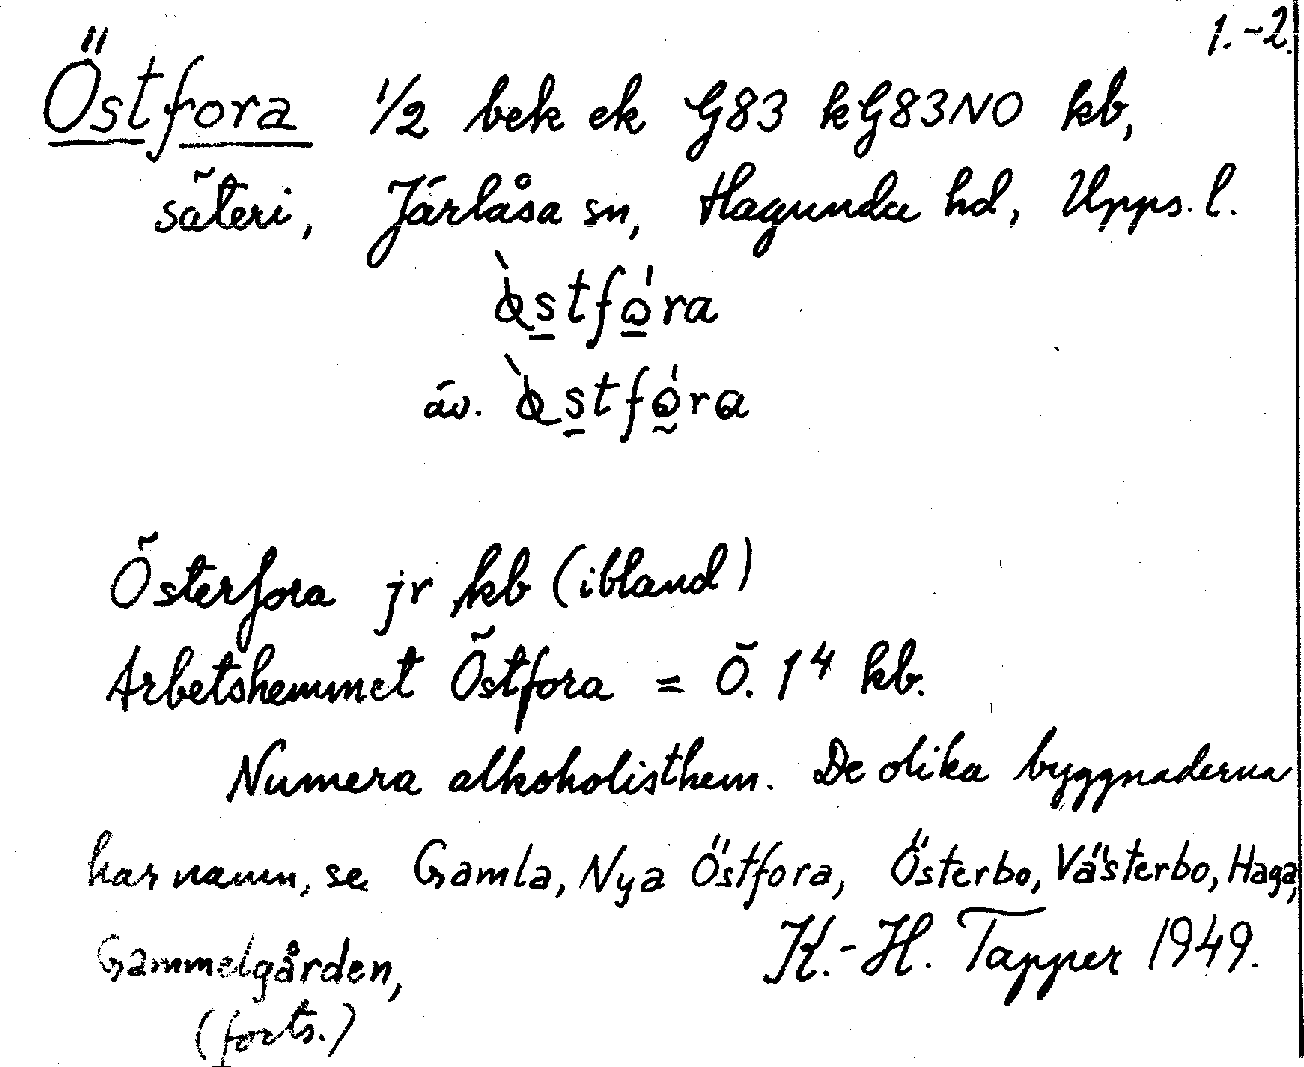 1.-2.
Östfora 1/2 bek ek G83 kG83NO kb,
säteri, Järlåsa sn, Hagunda hd, Upps. l.
äv.
Österfora jr kb (ibland)
Arbetshemmet Östfora = Ö. 1⁴ kb.
Numera alkoholisthem. De olika byggnaderna
har namn, se Gamla, Nya Östfora, Österbo, Västerbo, Haga,
Gammelgården, K.-H. Tapper 1949.
(forts.)